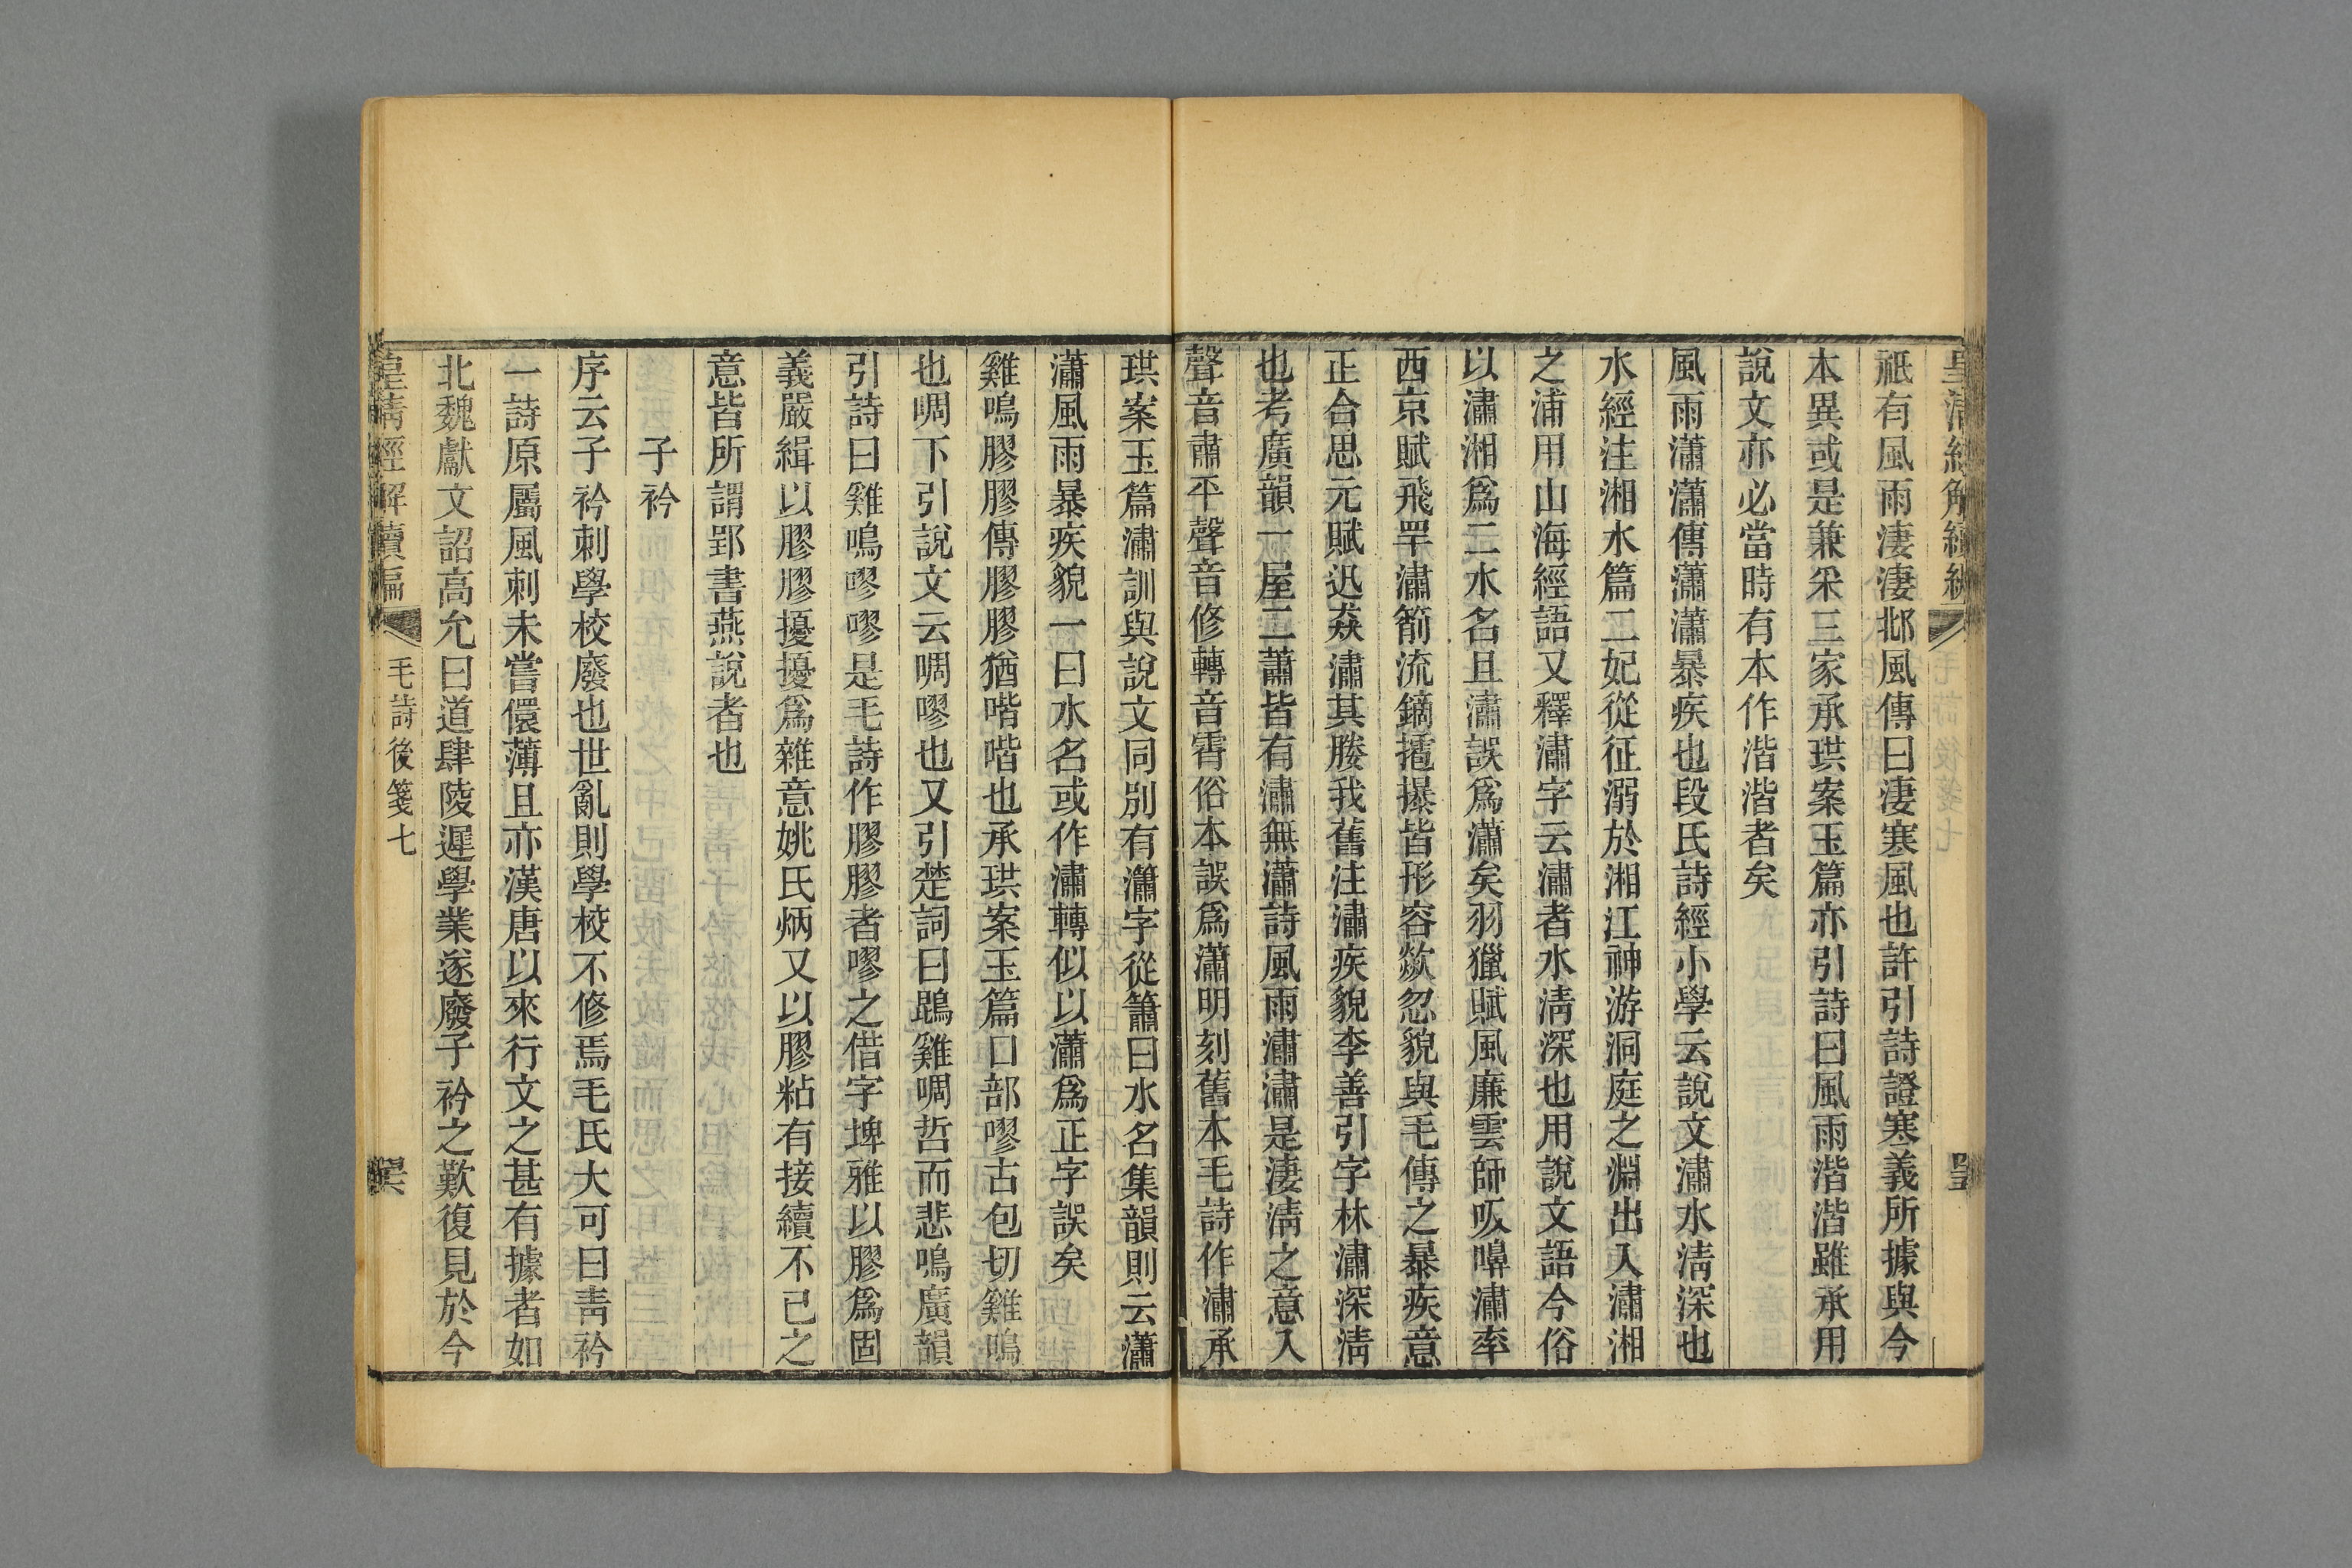 祇有風雨淒淒邶風傳曰淒寒風也許引詩證寒義所據與今
本異或是兼采三家承珙案玉篇亦引詩曰風雨湝湝雖承用
說文亦必當時有本作湝湝者矣
風雨瀟瀟傳瀟瀟暴疾也段氏詩經小學云說文潚水淸深也
水經注湘水篇二妃從征溺於湘江神游洞庭之淵出入潚湘
之浦用山海經語又釋潚字云潚者水淸深也用說文語今俗
以潚湘爲二水名且潚誤爲瀟矣羽獵賦風廉雲師吸嚊潚率
西京賦飛罕潚箾流鏑㩧㩧皆形容歘忽貌與毛傳之暴疾意
正合思元賦迅猋潚其媵我舊注潚疾貌李善引字林潚深淸
也考廣韻一屋二蕭皆有潚無瀟詩風雨潚潚是淒淸之意入
聲音肅平聲音修轉音霄俗本誤爲瀟明刻舊本毛詩作潚承
珙案玉篇潚訓與說文同別有瀟字從簫曰水名集韻則云瀟
瀟風雨暴疾貌一曰水名或作潚轉似以瀟爲正字誤矣
雞鳴膠膠傳膠膠猶喈喈也承珙案玉篇口部嘐古包切雞鳴
也啁下引說文云啁嘐也又引楚詞曰鵾雞啁哲而悲鳴廣韻
引詩曰雞鳴嘐嘐是毛詩作膠膠者嘐之借字埤雅以膠爲固
義嚴緝以膠膠擾擾爲雜意姚氏炳又以膠粘有接續不已之
意皆所謂郢書燕說者也
子衿
序云子衿刺學校廢也世亂則學校不修焉毛氏大可曰靑衿
一詩原屬風刺未嘗儇薄且亦漢唐以來行文之甚有據者如
北魏獻文詔高允曰道肆陵遲學業遂廢子衿之歎復見於今
皇淸經解續編
毛詩後箋七